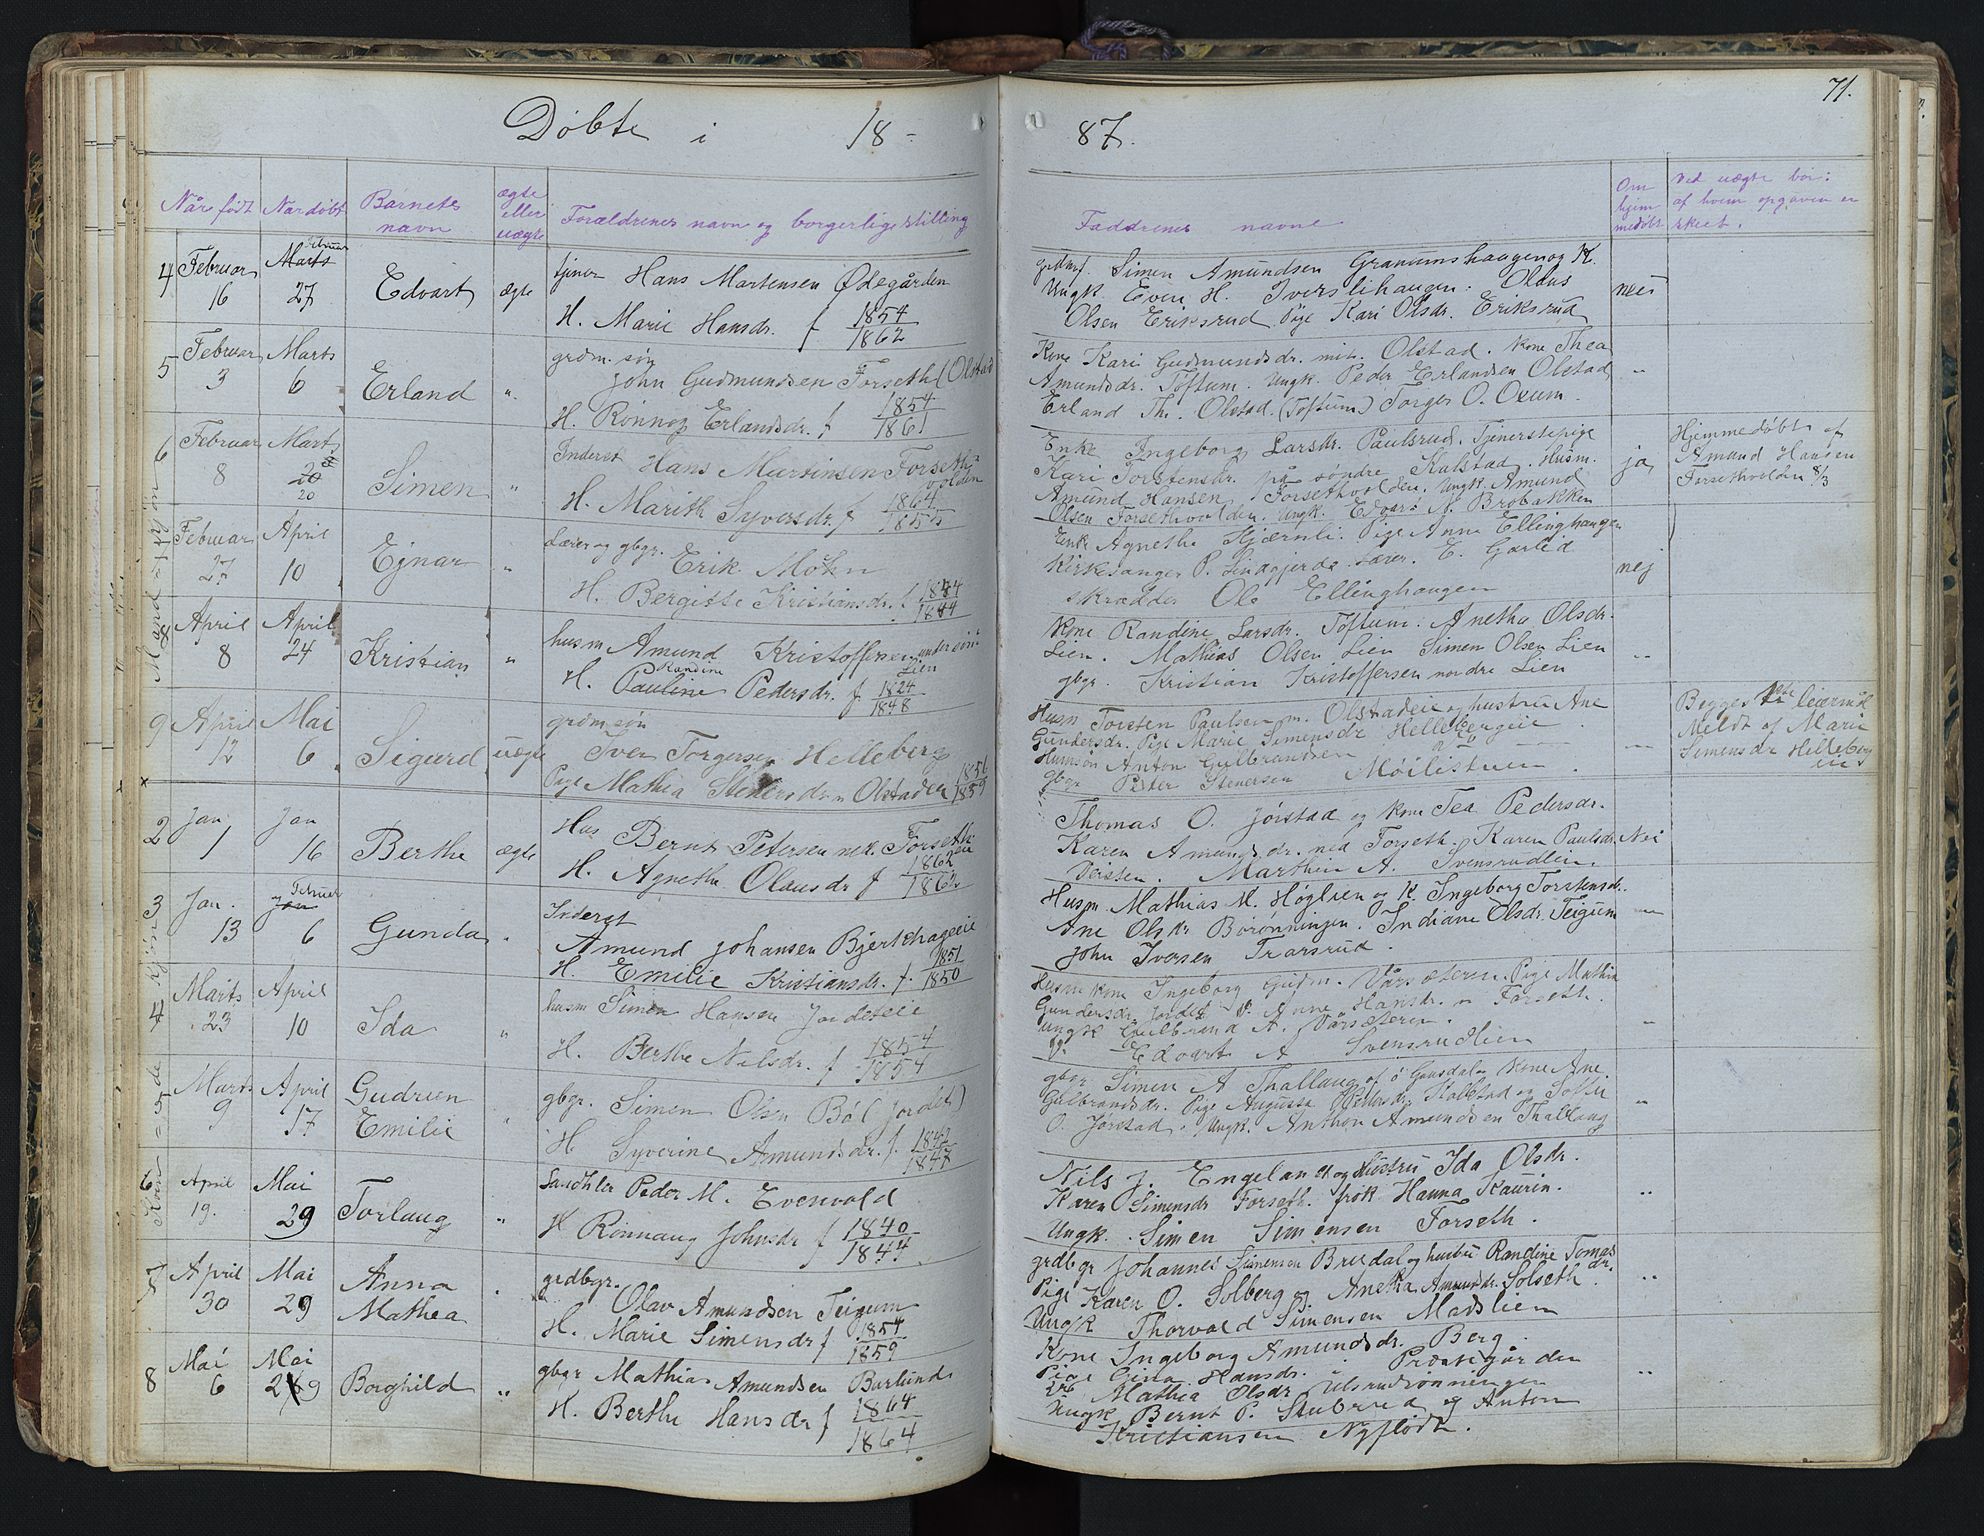 71.
Døbte i 18-87.
Når født
Når døbt
Barnets navn
ægte eller uægte
Forældrenes navn og borgerlige stilling
Faddrenes navne
Om hjem medøbt
Ved uægte bør: af hvem opgaven er skeet.
Mandkjøn
4 Februar 16 Marts Februar 27 Edvart ægte
tjener Hans Martensen Ødegården
H. Marie Hansdr. f 1854 1862
grdmf. Simen Amundsen Granumshaugen og K.
Ungk Even H. Iverslihaugen. Olaus nei
Olsen Eriksrud Pige Kari Olsdr. Eriksrud
5 Februar 3 Marts 6 Erland "
grdm. søn
John Gudmundsen Forseth (Olstad
H. Rønnog Erlandsdr. f 1854 1861
Kone Kari Gudmundsdr. Olstad. Kone Thea
Amundsdr. Toftum. Ungk. Peder Erlandsen Olstad "
Erland Th. Olstad (Toftum) Torger O. Oeum.
6 Februar 8 Marts 20 20 Simen "
Inderst Hans Martinsen Forseth volden
H. Marith Syversdr. f 1864 1855
Enke Ingeborg Larsdr. Paulsrud. Tjenerstepige
Kari Torstensdr. på søndre Kulstad. Husm. ja
Amund Hansen Forsethvolden, Ungk. Amund
Olsen Forsethvolden. Ungk. Edvart Brobakken
Hjemmedøbt af
Amund Hansen
Forsethvolden 8/3
7 Februar 27 April 10 Ejnar "
Lærer og gbgr. Erik Mohn
H. Bergitte Kristiansdr. f 1844 1844
Enke Agnethe Hjærnli. Pige Anne Ellinghaugen
Kirkesanger P. Lindgjerde Lærer. E. Garlid nej
Skrædder Ole Ellinghaugen
8 April 8 April 24 Kristian "
husm Amund Kristoffersen under søn: Lien
H. Pauline Randine Pedersdr. f 1824 1848
Kone Randine Larsdr. Toftum. Anethe Olsdr.
Lien. Mathias Olsen Lien Simen Olsen Lien "
gbgr. Kristian Kristoffersen nordre Lien
9 April 12 Mai 6 Sigurd uægte
grdm søn
Iver Torgersen Helleberg
Pige Mathea Stenersdr. Olstadeie 1856 1859
Husm Torsten Paulsen Olstadeie og hustru Ane
Gundersdr. Pige Marie Simensdr Hellebergeie
Humsøn Anton Gulbrandsen "
gbgr Peter Stenersen Møilistuen
Begges 1ste leiermål
Meldt af Marie
Simensdr Helleberg
eie
Kvindekjøn
2 Jan 1 Jan 16 Berthe ægte
Hus Bernt Petersen ned. Forseth eie
H. Agnethe Olausdr f 1862 1862
Thomas O. Jørstad og Kone Tea Pedersdr.
Karen Amundsdr. ned Forseth. Karen Paulsdr. Nei
Veisten. Marthin A. Svensrudlien.
3 Jan. 13 Jan Februar 6 Gunda "
Inderst
Amund Johansen Bjerkhageeie
H. Emilie Kristiansdr. f. 1851 1850
Husm. Mathias M. Høglien og K. Ingeborg Torstensdr.
Ane Olsdr Borønningen. Indiane Olsdr. Teigum "
John Iversen Trarsrud.
4 Marts 23 April 10 Ida "
husm Simen Hansen Jordeteie
H. Berthe Nilsdr. f 1854 1854
Husm kone Ingeborg Gudm. Vårsæteren. Pige Mathia
Gundersdr. Jordet P. Anne Hansdr. Forseth.
Ungk Gulbrand A. Vårsæteren. "
Edvart A Svensrudlien
5 Marts 9 April 17 Gudrun Emilie "
gbgr. Simen Olsen Bøl (Jordet)
H Syverine Amundsdr. f. 1842 1847
gbgr. Simen A Thallaug af ø Gausdal og Kone Ane
Gulbrandsdr. Pige Augusta Kalstad og Sofie "
O. Jørstad. Ungk. Anthon Amundsen Thallaug
6 April 19. Mai 29 Torlaug "
Landhler Peder M. Evenvold
H Rønnaug Johnsdr f 1840 1844
Nils J. Engeland og Hustru Ida Olsdr.
Karen Simensdr Forseth. frøk Hanna Kaurin. "
Ungk. Simen Simensen Forseth.
7 April 30 Mai 29 Anna Mathea "
grdbgr.
Olav Amundsen Teigum
H. Marie Simensdr f 1854 1859
grdbgr Johannes Simensen Bredal og hustru Randine Tomasdr.
Pige Karen O. Solberg og Anetha Amundsdr. Solseth "
Ungk Thorvald Simensen Madslien
8 Mai 6 Mai 29 Borghild "
gbgr Mathias Amundsen Burlund
H. Berthe Hansdr f 1864 1864
Kone Ingeborg Amundsdr. Berg.
Pige Gina Hansdr. i Præstegården "
Mathea Olsdr Ulsrudrønningen
Ungk Bernt P. Stubrud og Anton
Kristiansen Nyflødt.